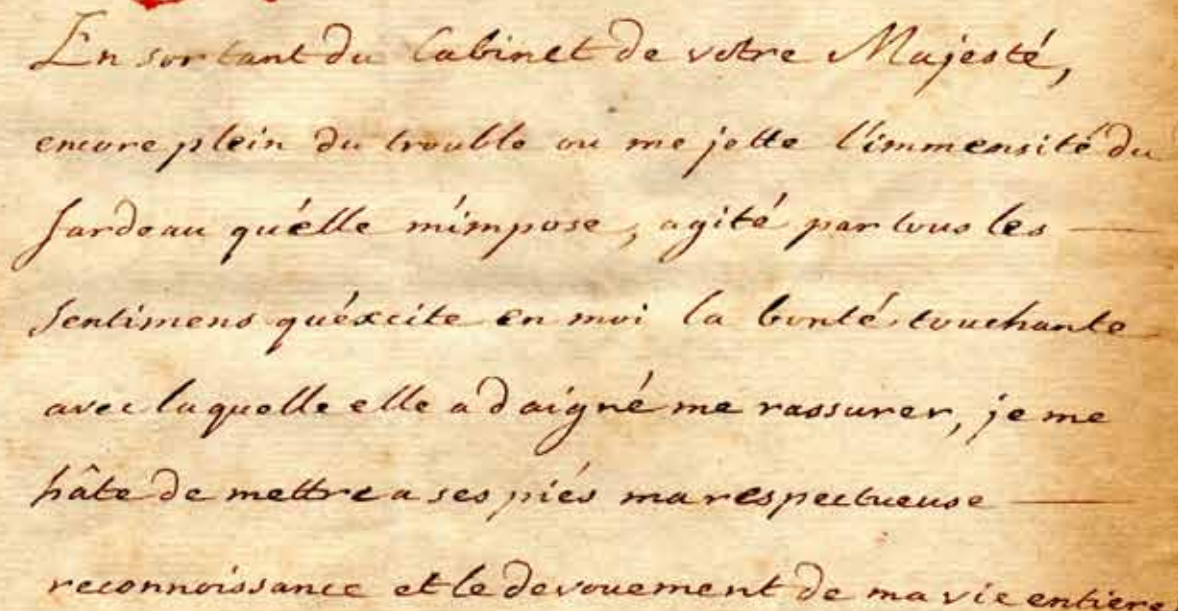 En sortant du Cabinet de votre Majesté,
encore plein du trouble ou me jette l'immensité du
fardeau qu'élle m'impose, agité par tous les
sentimens qu'éxcite en moi la bonté touchante
avec laquelle elle a daigné me rassurer, je me
hâte de mettre a ses piés ma respectueuse
reconnoissance et le devouement de ma vie entiere.